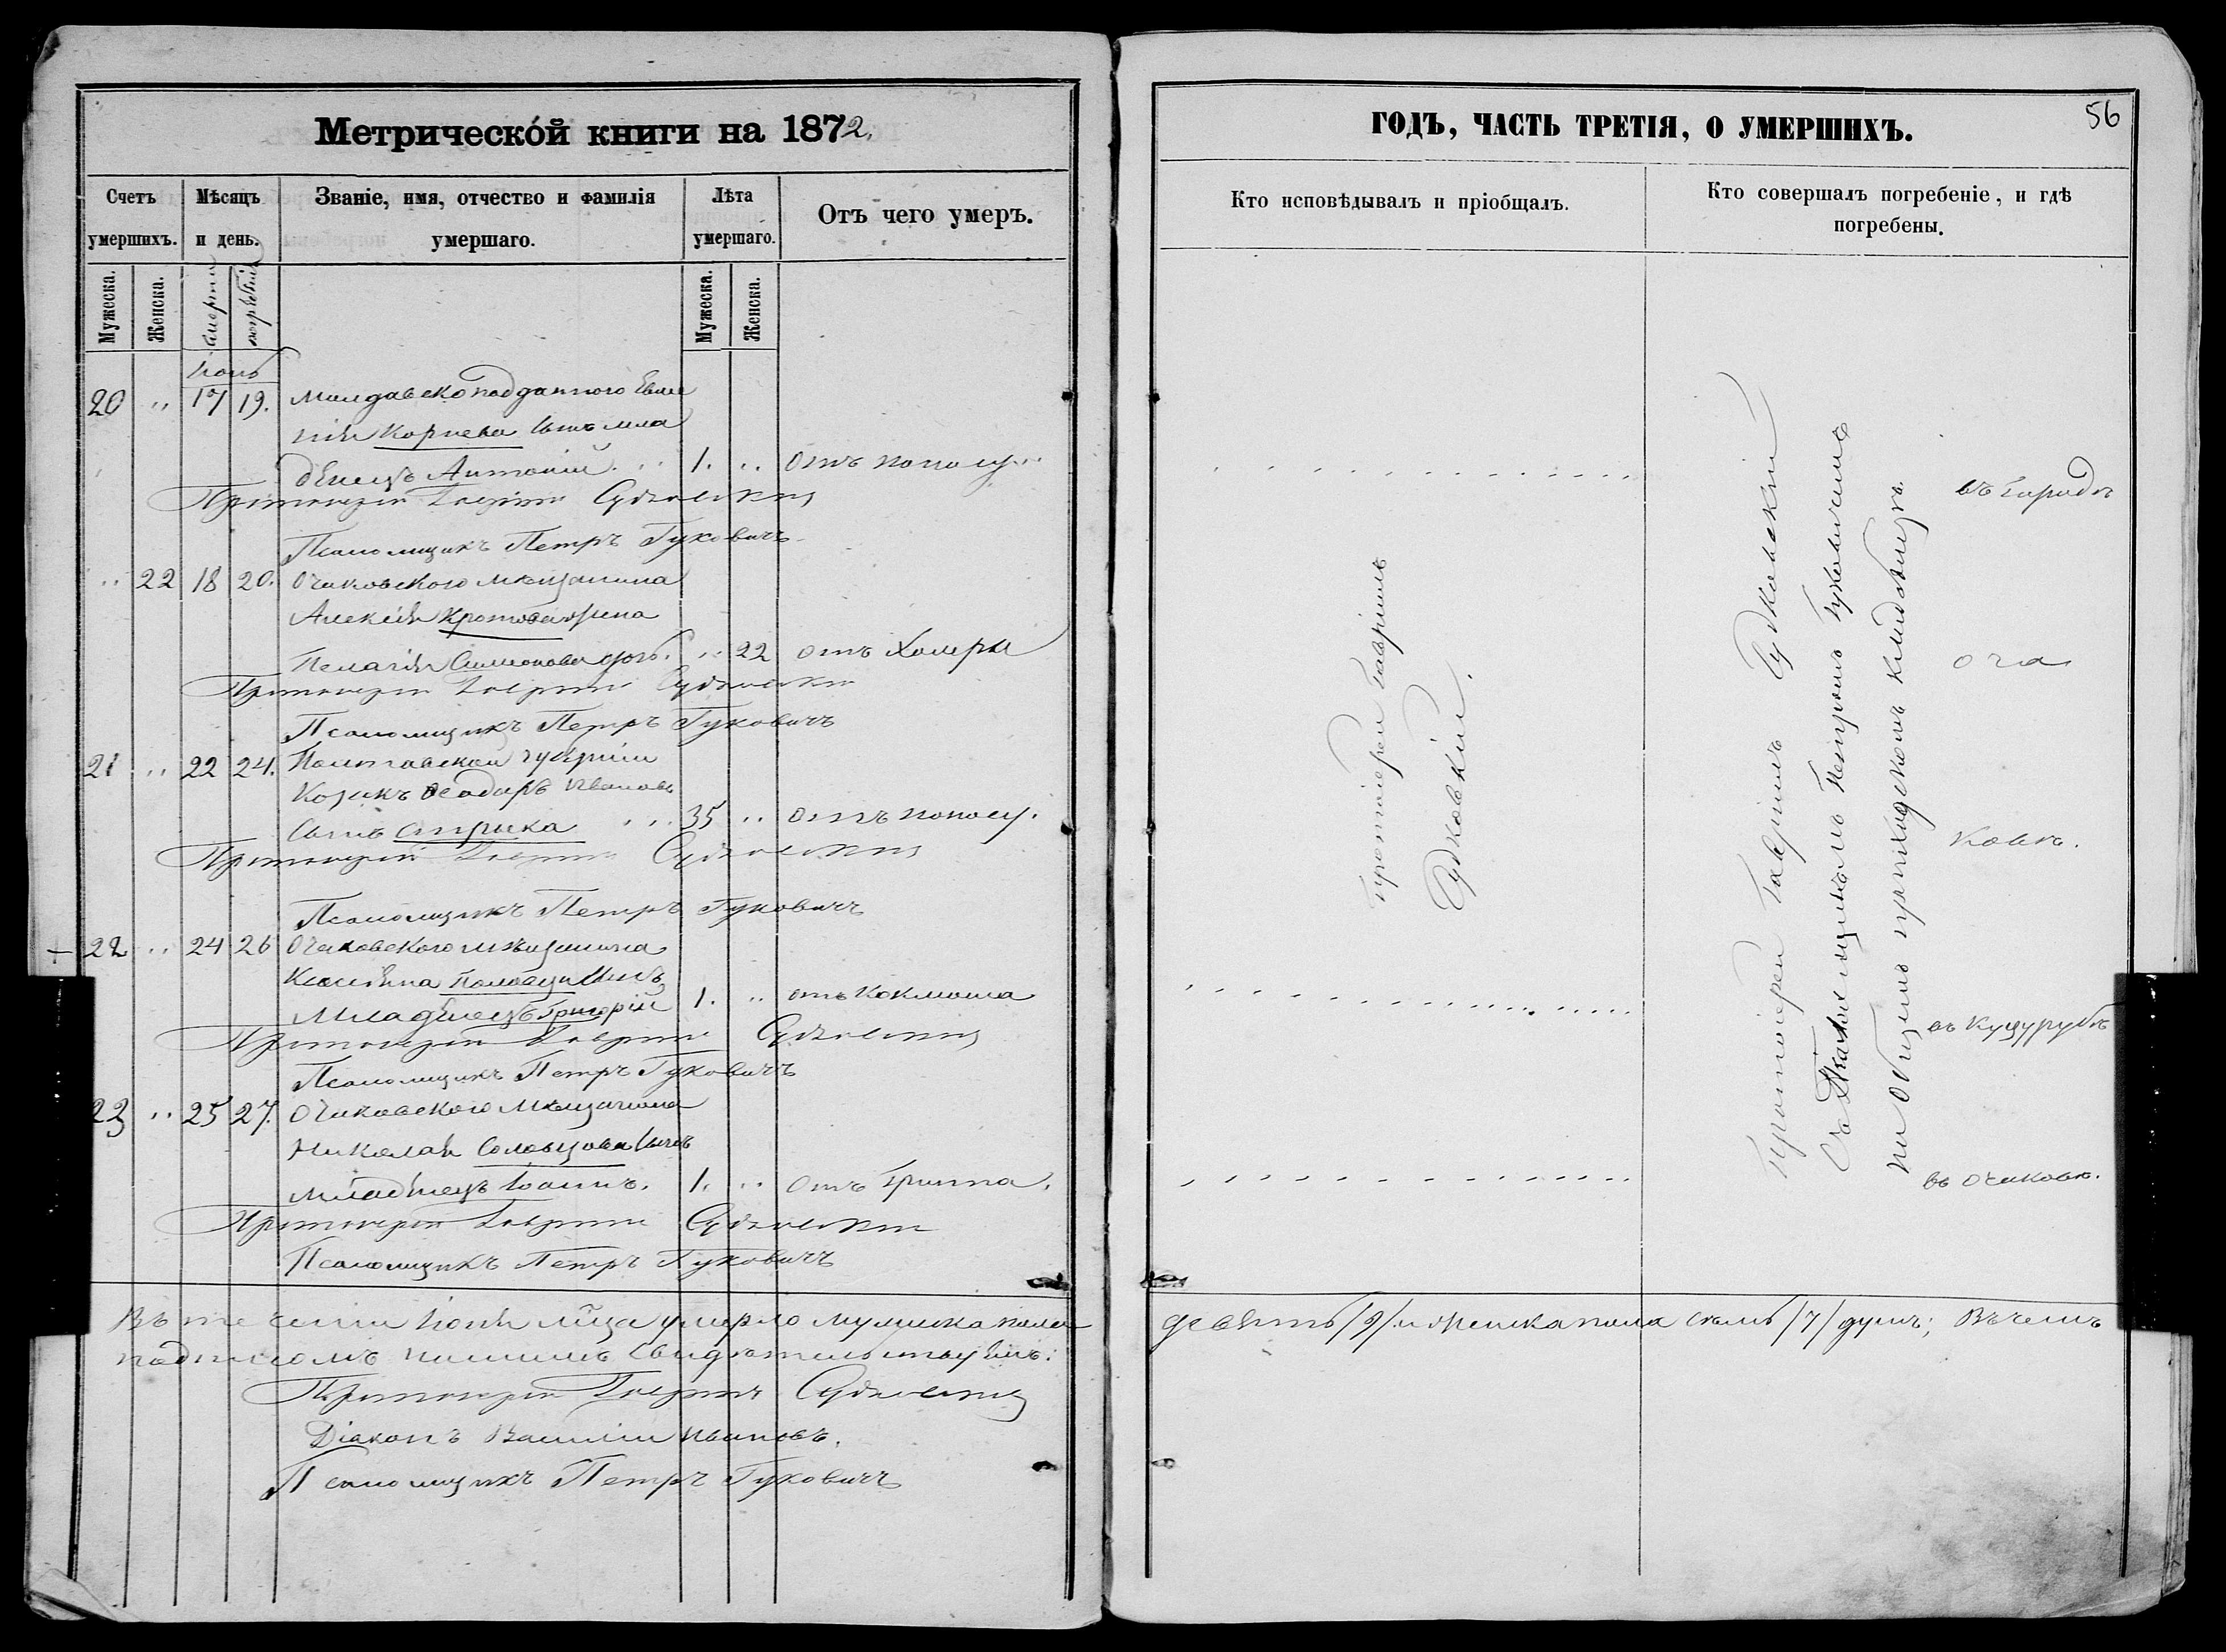 Метрической книги на 1872.
Счетъ умершихъ.
Мѣсяцъ и день.
Званіе, имя, отчество и фамилія умершаго.
Лѣта умершаго.
Отъ чего умеръ.
Мужеска.
Женска.
смерти
погребенія
Мужеска.
Женска.
Іюнь
20 " 17 19. Молдавскоподданного Евге
нія Корнева сынъ мла
денецъ Антоній 1. " отъ поносу
Протоіерей Гавріилъ Судковскій
Псаломщикъ Петръ Гуковичъ
" 22 18 20. Очаковского мѣщанина
Алексія
Пелагія Симонова " 22 отъ Холеры
Протоіерей Гавріилъ Судковскій
Псаломщикъ Петръ Гуковичъ
21 " 22 24. Полтавской губерніи
Козакъ Ѳеодоръ Ивановъ
сынъ Стрыка 35 " отъ поносу.
Протоіерей Гавріилъ Судковскій
Псаломщикъ Петръ Гуковичъ
22 " 24 26 Очаковского мѣщанина
сынъ
младенецъ Григорій 1. " отъ Коклюша
Протоіерей Гавріилъ Судковскій
Псаломщикъ Петръ Гуковичъ
23 " 25 27. Очаковского мѣщанина
Николая Соловцова сынъ
младенецъ Іоаннъ. 1. " Отъ Гриппа.
Протоіерей Гавріилъ Судковскій
Псаломщикъ Петръ Гуковичъ
Въ теченіи Іюня мѣца умерло мужеска пола
подписомъ нашимъ свидѣтельствуемъ:
Протоіерей Гавріилъ Судковскій
Діаконъ Василій Ивановъ.
Псаломщикъ Петръ Гуковичъ
ГОДЪ, ЧАСТЬ ТРЕТІЯ, О УМЕРШИХЪ.
56
Кто исповѣдывалъ и пріобщалъ.
Кто совершалъ погребеніе, и гдѣ погребены.
Протоіерей Гавріилъ
Судковскій.
Протоіерей Гавріилъ Судковскій
Съ Псаломщикомъ Петромъ Гуковичемъ
на общемъ приходскомъ кладбищѣ.
въ Городѣ
Оча
ковѣ.
въ Куцурубѣ
въ Очаковѣ.
девять /9/ и женска пола семь /7/ душъ; Въ чемъ